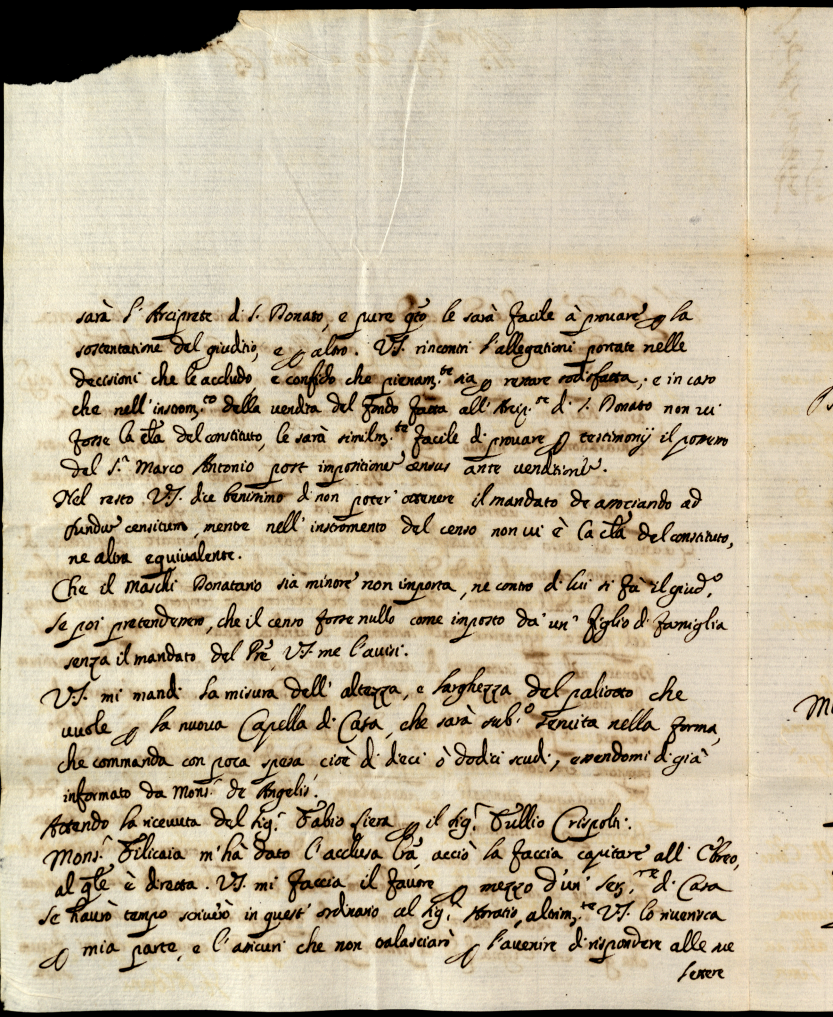 sarà l'Arciprete di S. Donato, e pure q̃to le sarà facile à provare p la
sostentatione del giuditio, e p altro. V.S. rincontri l'allegationi portate nelle
decisioni che le accludo, e confido che pienam.te sia p restare sodisfatta; e in caso
che nell'instrom.to della vendita del fondo fatta all'Arcip.te di S. Donato non vi
fosse la cl̃a del constituto, le sarà similm.te facile di provare p testimonij il possesso
del S.r Marco Antonio post impositione census ante venditione.
Nel resto V.S. dice benissimo di non poter ottenere il mandato de associando ad
fundũ censitum, mentre nell'instromento del censo non vi è la cl̃a del constituto,
ne altra equivalente.
Che il Maschi Donatario sia minore non importa, ne contro di lui si fà il giud.o
Se poi pretendessero, che il censo fosse nullo come imposto da un figlio di famiglia
senza il mandato del Prẽ, V.S. me l'avisi.
V.S. mi mandi la misura dell'altezza, e larghezza del paliotto che
vuole p la nuova Capella di Casa, che sarà sub.o servita nella forma,
che commanda con poca spesa cioè di dieci ò dodici scudi, essendomi di già
informato da Mons.r de Angelis.
Attendo la ricevuta del Sig.r Fabio Siera p il Sig.r Tullio Crispolti.
Mons.r Filicaia m'hà dato l'acclusa lrã, acciò la faccia capitare all'Ebreo,
al q̃le è diretta. V.S. mi faccia il favore p mezzo d'un ser.re di Casa
Se havrò tempo scriverò in quest'ordinario al Sig.r Horatio, altrim.te V.S. lo riverisca
p mia parte, e l'assicuri che non tralasciarò p l'avenire di rispondere alle sue
lettere